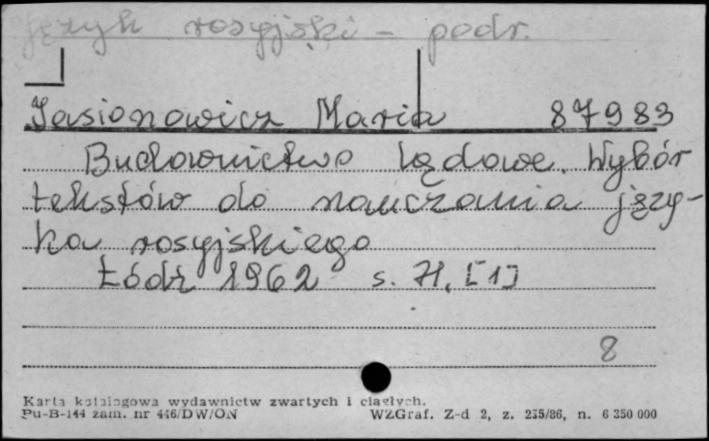 język rosyjski - podr.
Jasionowicz Maria 87983
Budownictwo lądowe. Wybór
tekstów do nauczania języ-
ka rosyjskiego
Łódź 1962 s. 71, [1]
8
Karta katalogowa wydawnictw zwartych i ciągłych.
Pu-B-144 zam. nr 446/DW/ON WZGraf. Z-d 2, z. 235/86, n. 6 350 000